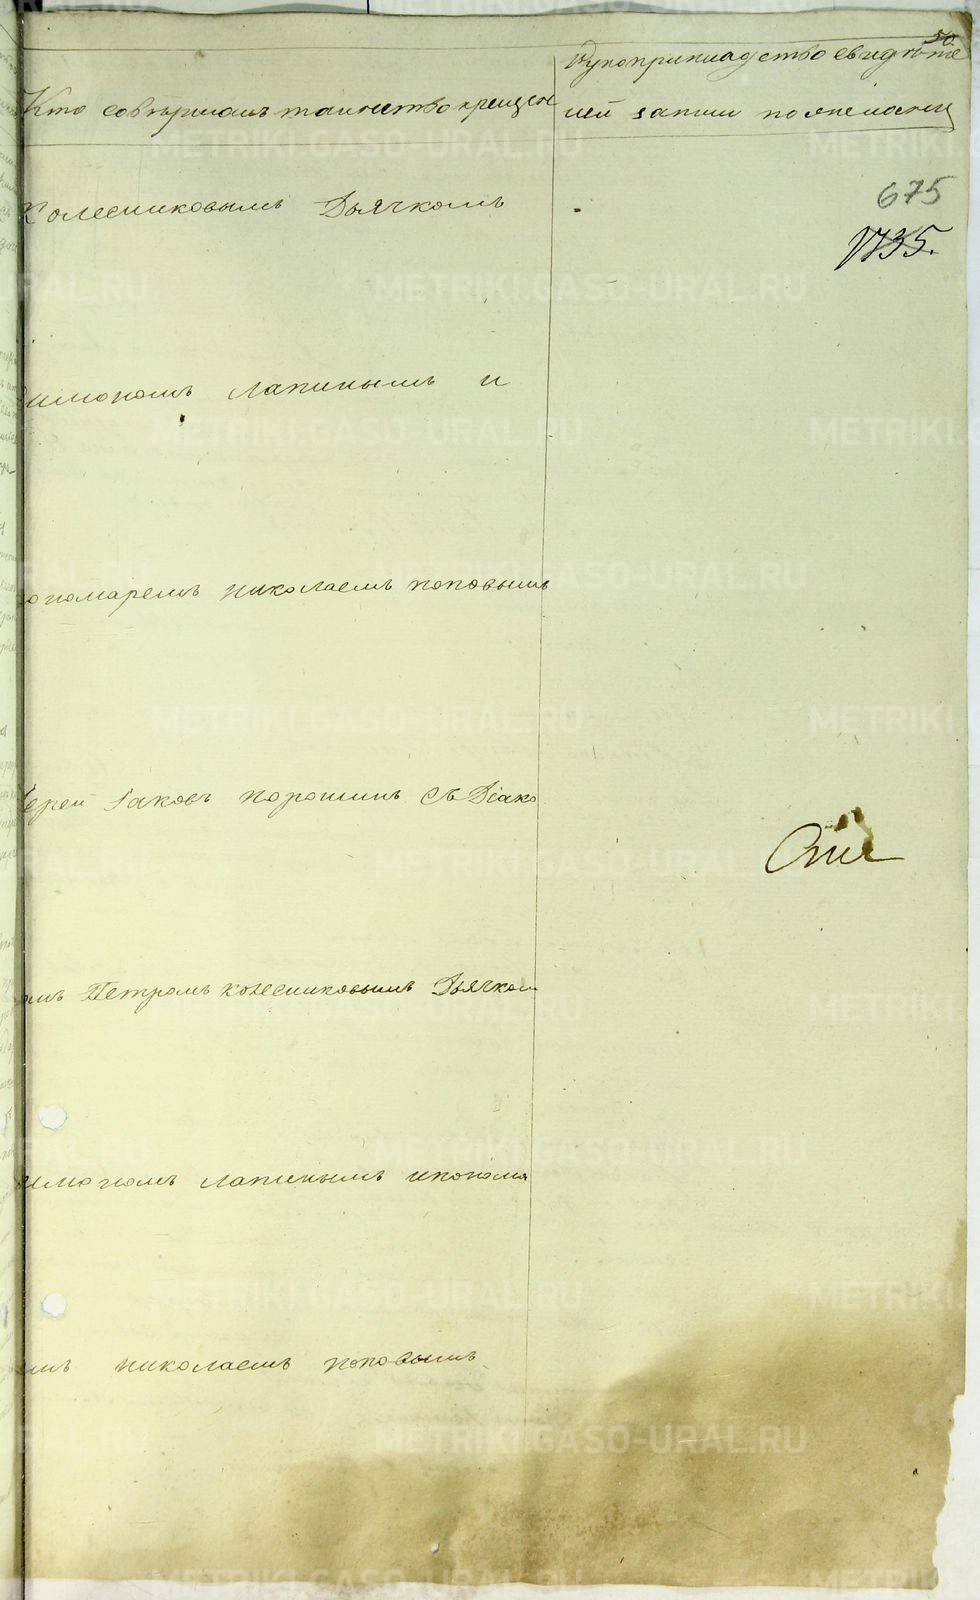 50.
Кто совершалъ таинство крещен
Рукоприкладство свидѣте
лей записи по желанию
Колесниковымъ Дьячкомъ
675
1735.
имономъ Лапинымъ и
ономаремъ Николаемъ Поповымъ
Іерей Іаковъ Порошинъ съ Діако
омъ Петромъ Колесниковымъ Дьячком
имономъ Лапинымъ и понома
емъ Николаемъ Поповымъ
METRIKI.GASO-URAL.RU